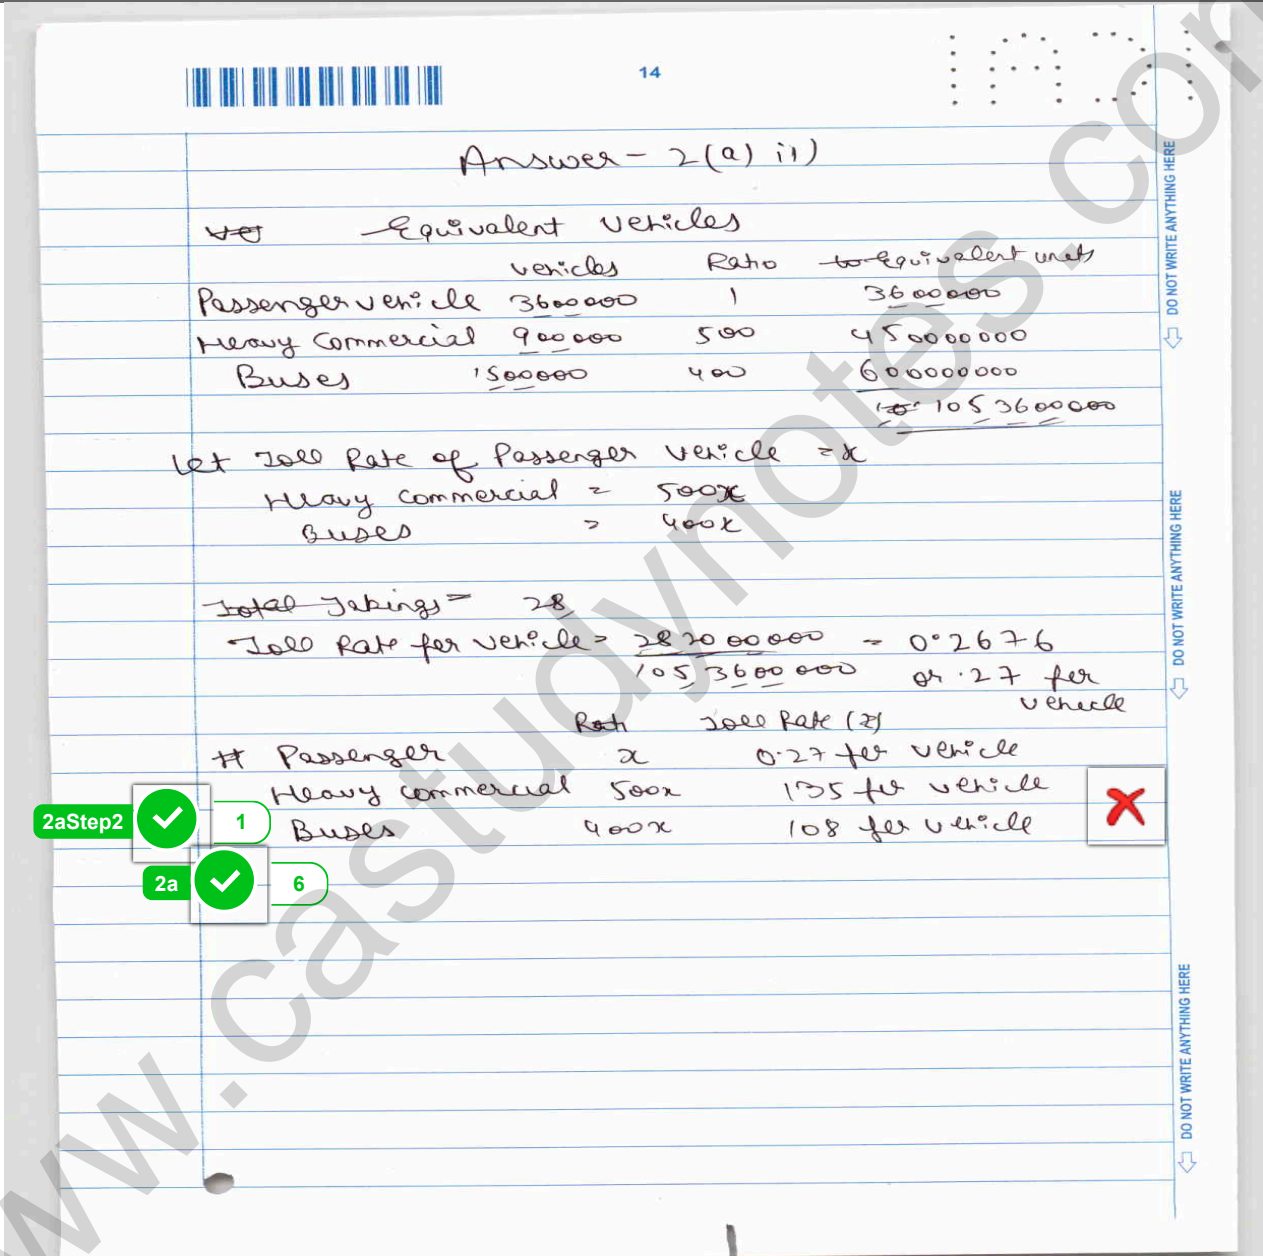 14
Answer - 2(a) ii)
Equivalent Vehicles
Vehicles Ratio to Equivalent units
Passenger vehicle 3600000 1 3600000
Heavy Commercial 900000 500 450000000
Buses 1500000 400 600000000
1053600000
Let Toll Rate of Passenger Vehicle = x
Heavy Commercial = 500x
Buses = 400x
Total Takings = 28
Toll Rate per vehicle = 282000000 = 0.2676
1053600000 or .27 per
vehicle
Toll Rate (₹)
# Passenger x 0.27 per vehicle
Heavy commercial 500x 135 per vehicle
2aStep2 1
Buses 400x 108 per vehicle
2a 6
DO NOT WRITE ANYTHING HERE
DO NOT WRITE ANYTHING HERE
DO NOT WRITE ANYTHING HERE
www.castudynotes.com